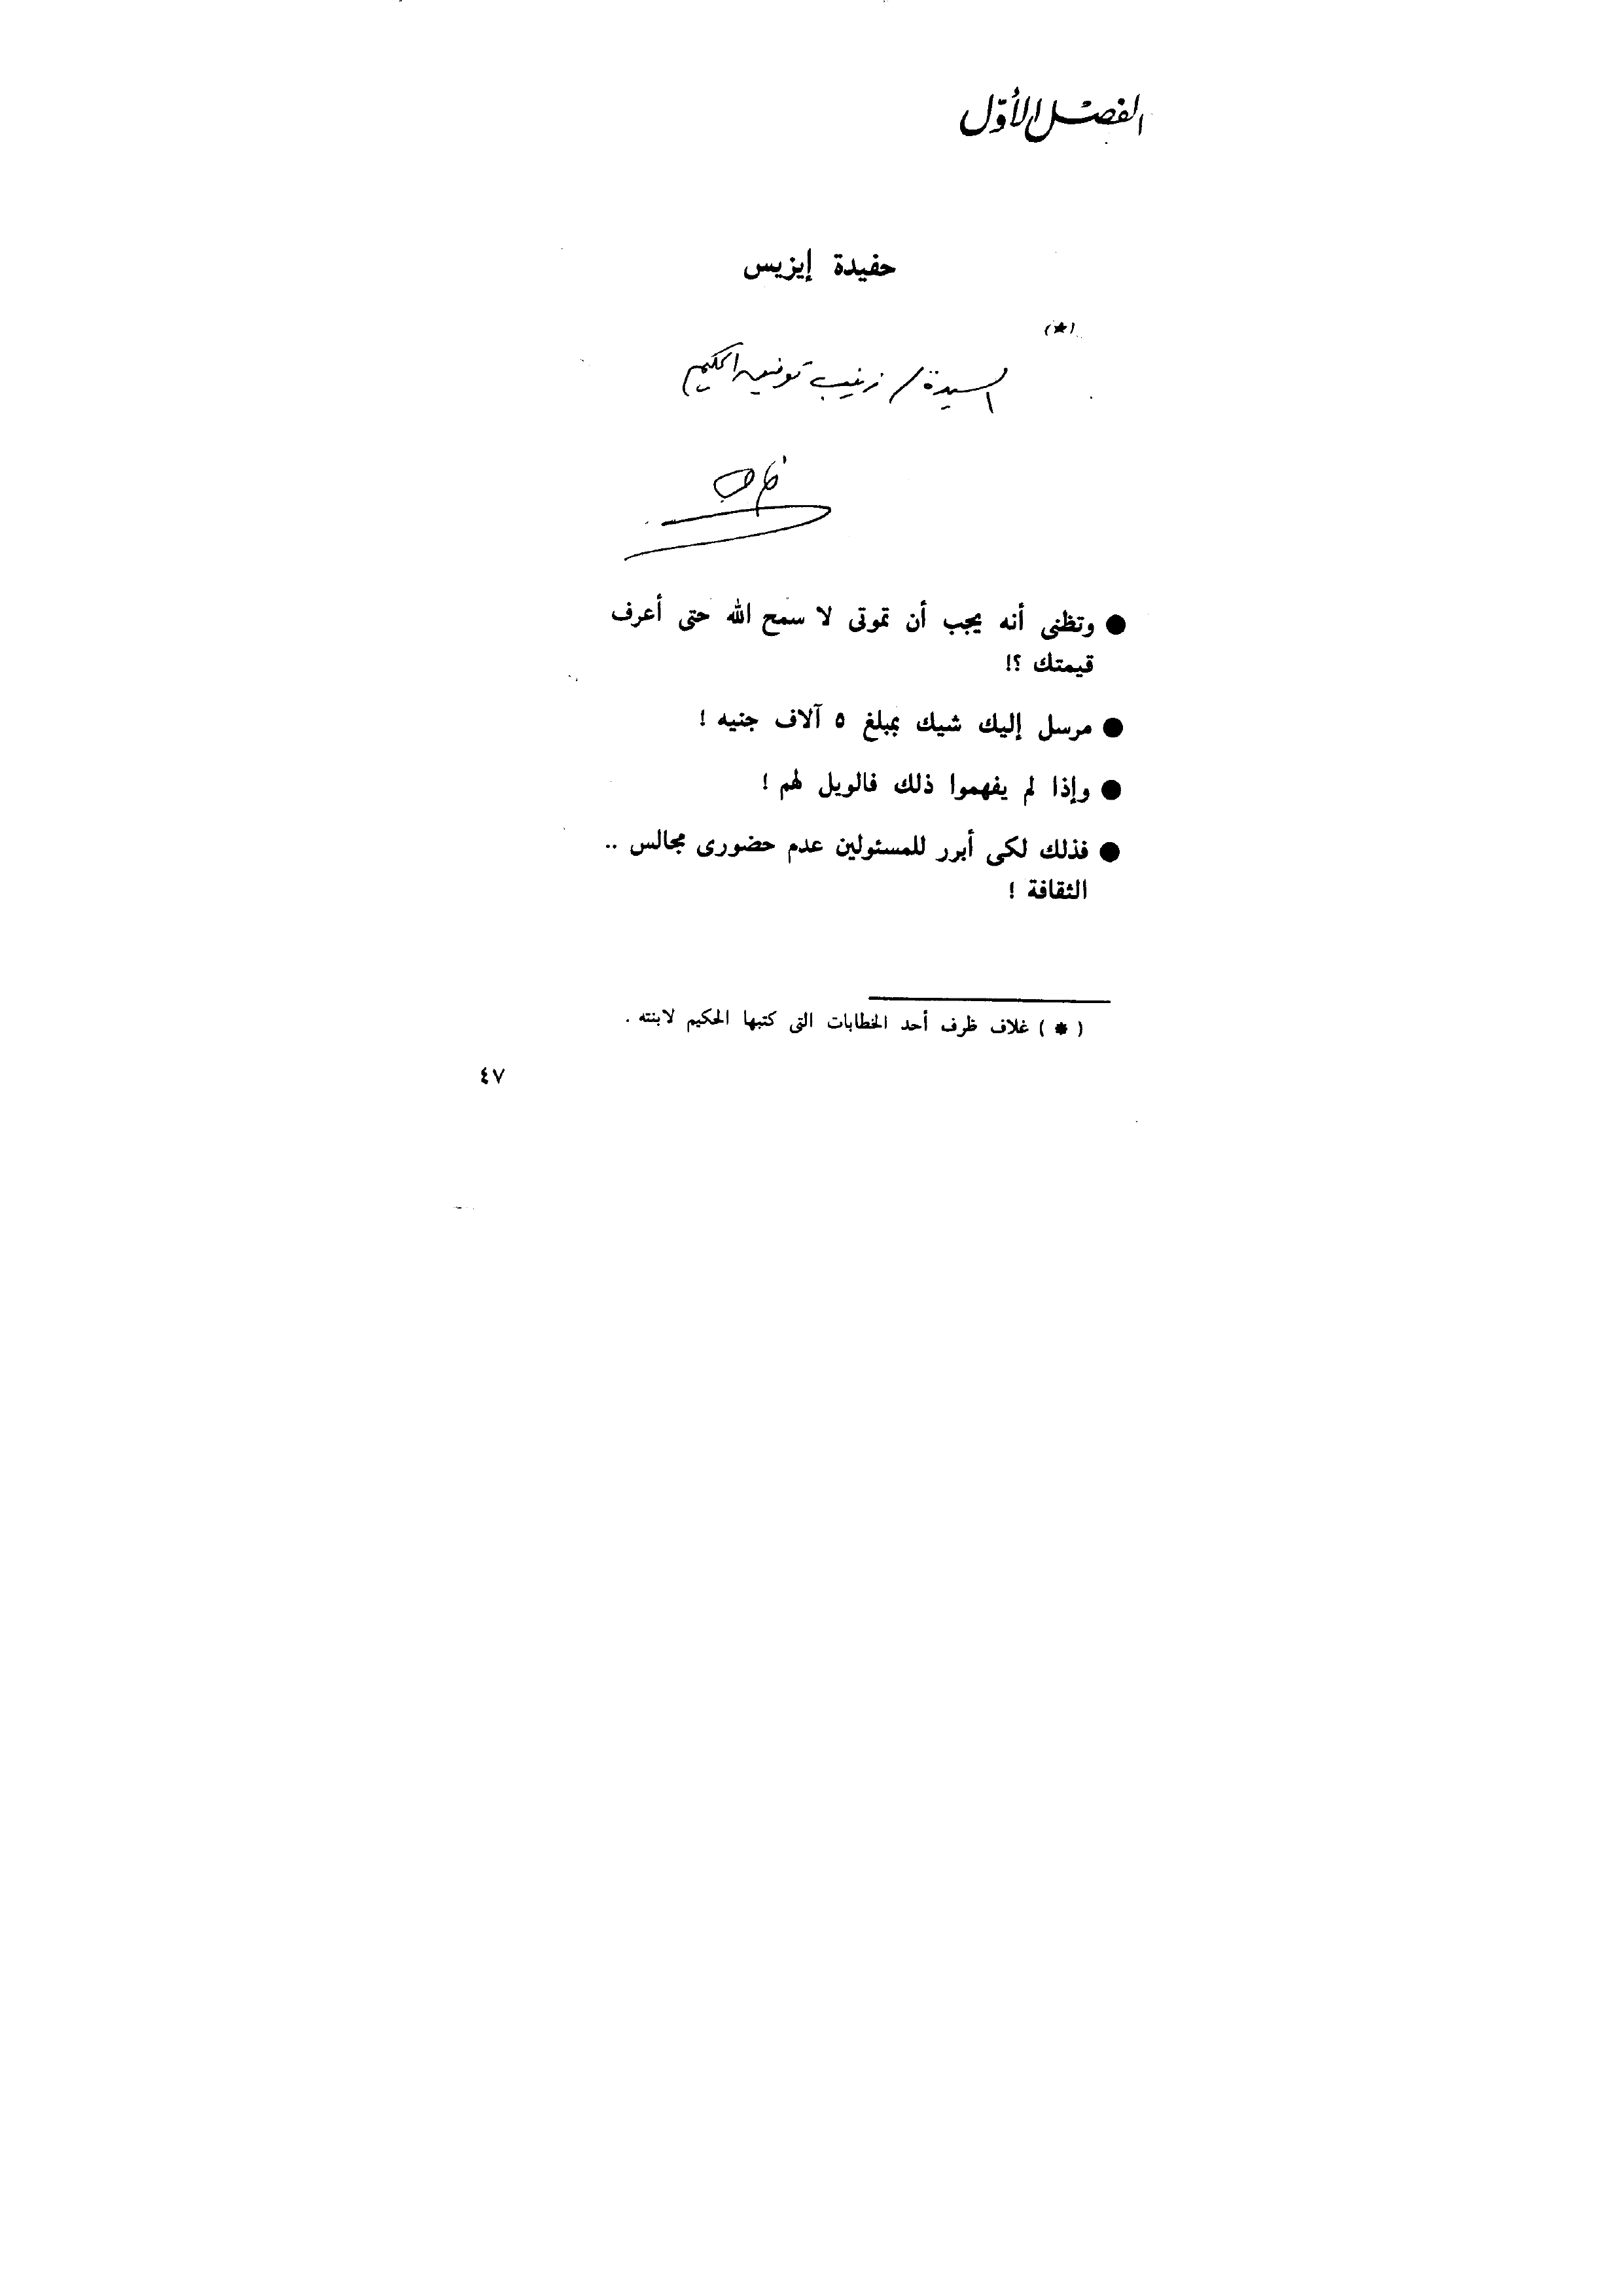 الفصل الأوّل
حفيدة إيزيس
(*)
السيدة / زينب توفيق الحكيم
● وتظنى أنه يجب أن تموتى لا سمح الله حتى أعرف
قيمتك ؟!
● مرسل إليك شيك بمبلغ ٥ آلاف جنيه !
● وإذا لم يفهموا ذلك فالويل لهم !
● فذلك لكى أبرر للمسئولين عدم حضورى مجالس ..
الثقافة !
( * ) غلاف ظرف أحد الخطابات التى كتبها الحكيم لابنته .
٤٧